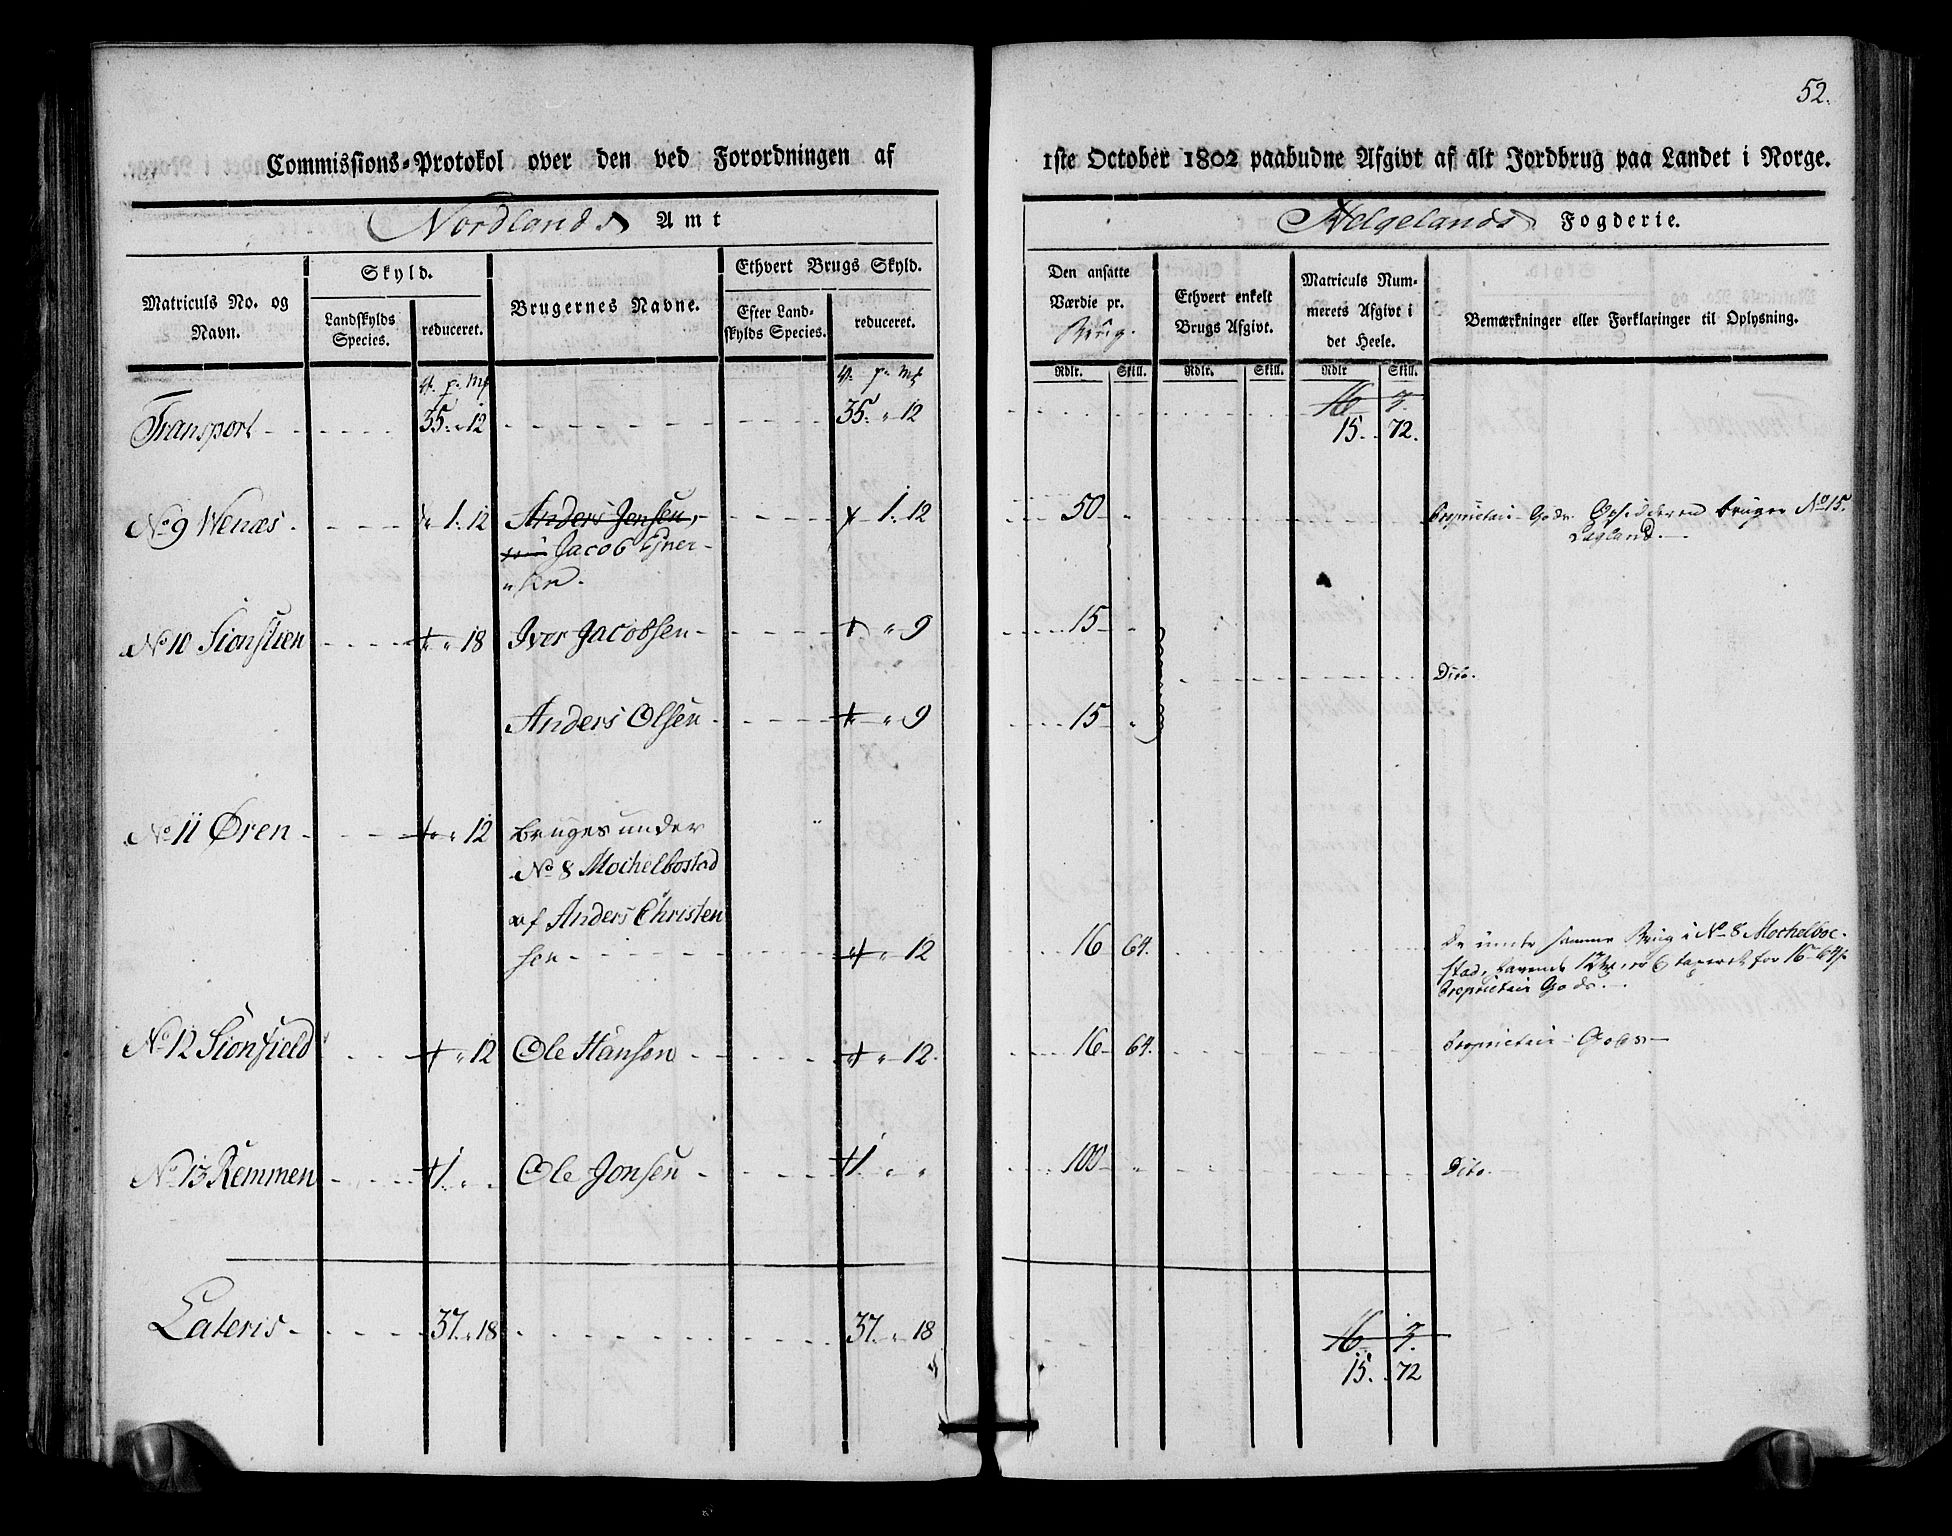 52.
Commissions-Protokol over den ved Forordningen af
1ste October 1802 paabudne Afgivt af alt Jordbrug paa Landet i Norge.
Nordlands Amt
Helgelands Fogderie.
Matriculs No. og Navn.
Skyld.
Landskylds Species.
reduceret.
Brugernes Navne.
Ethvert Brugs Skyld.
Efter Landskylds Species.
reduceret.
Den ansatte Værdie pr. Brug.
Ethvert enkelt Brugs Afgivt.
Matriculs Nummerets Afgivt i det Heele.
Bemærkninger eller Forklaringer til Oplysning.
Rdlr. Skill. Rdlr. Skill. Rdlr Skill.
Transport 35. " 12 35. " 12 16 3.
15. 72.
No 9 Wenæs. 1. 12 Anders Jensen, 1. 12 50 " Proprietair Gods. Opsidderen bruger No 15.
Jacob
No 10 Sionstien " 18 Iver Jacobsen " 9 15 "
Dito.
Anders Olsen " 9 15 "
No 11 Øren " 12 bruges under
No 8 Mochelbostad
af Anders Christen
sen " 12 16 64. No 8 Mochelboe-
stad, for 16 64
Proprietair Gods.
No 12 Sionfield " 12 Ole Hansen " 12. 16 64. Proprietair Gods
No 13 Remmen 1 " " Ole Jonsen 1 " " 100 " Dito.
Lateris 37. " 18 37. " 18 16 3.
15. 72